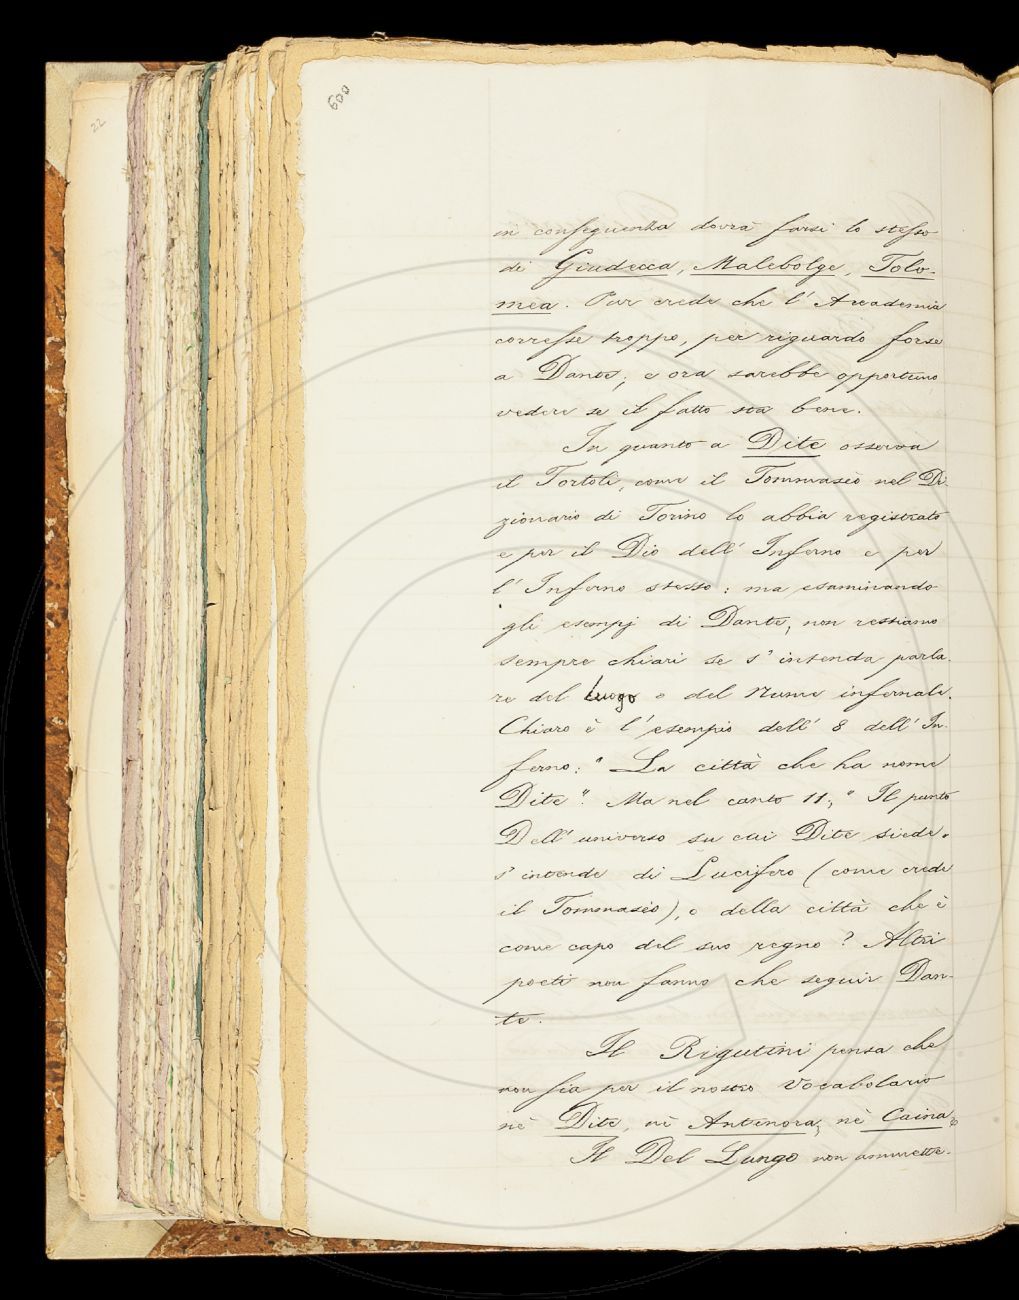 600
22
in conseguenza dovrà farsi lo stesso
di Giudecca, Malebolge, Tolo-
mea. Par crede che l'Accademia
corresse troppo, per riguardo forse
a Dante; e ora sarebbe opportuno
vedere se il fatto sta bene.
In quanto a Dite osserva
il Tortoli, come il Tommasèo nel Di-
zionario di Torino lo abbia registrato
e per il Dio dell'Inferno e per
l'Inferno stesso: ma esaminando
gli esempj di Dante, non restiamo
sempre chiari se s'intenda parla-
re del luogo o del Nume infernale.
Chiaro è l'esempio dell'8 dell'In-
ferno: "La città che ha nome
Dite". Ma nel canto 11;, "Il punto
Dell'universo su cui Dite siede"
s'intende di Lucifero (come crede
il Tommasèo), o della città che è
come capo del suo regno? Altri
poeti non fanno che seguir Dan-
te.
Il Rigutini pensa che
non sia per il nostro Vocabolario
nè Dite, nè Antenora, nè Caina.
Il Del Lungo non ammette-